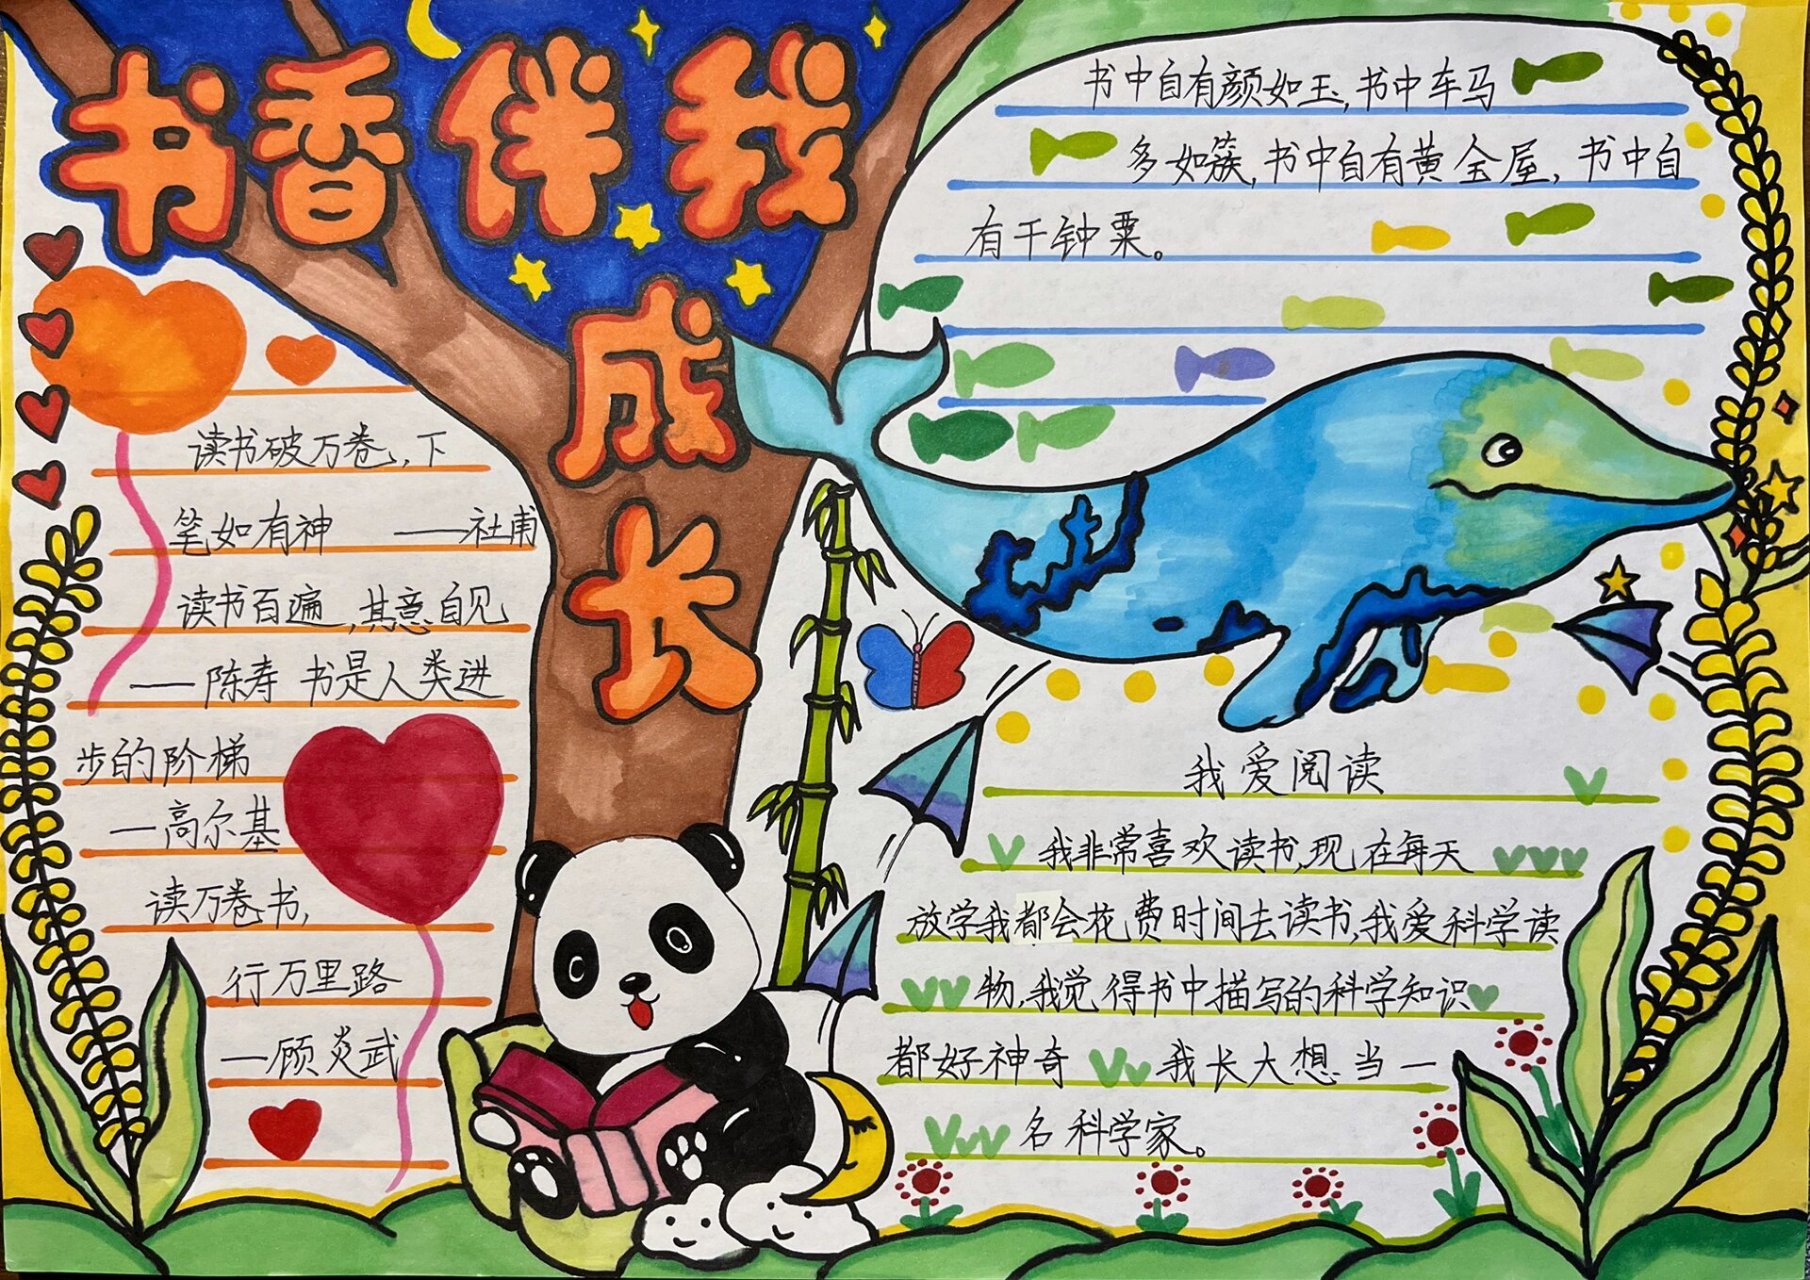 书香伴我
成长
读书破万卷,下
笔如有神 ——社甫
读书百遍,其意自见
——陈寿 书是人类进
步的阶梯
—高尔基
读万卷书,
行万里路
—顾炎武
书中自有颜如玉,书中车马
多如簇,书中自有黄金屋,书中自
有千钟粟。
我爱阅读
我非常喜欢读书,现在每天
放学我都会花费时间去读书,我爱科学读
物,我觉得书中描写的科学知识
都好神奇 我长大想当一
名科学家。